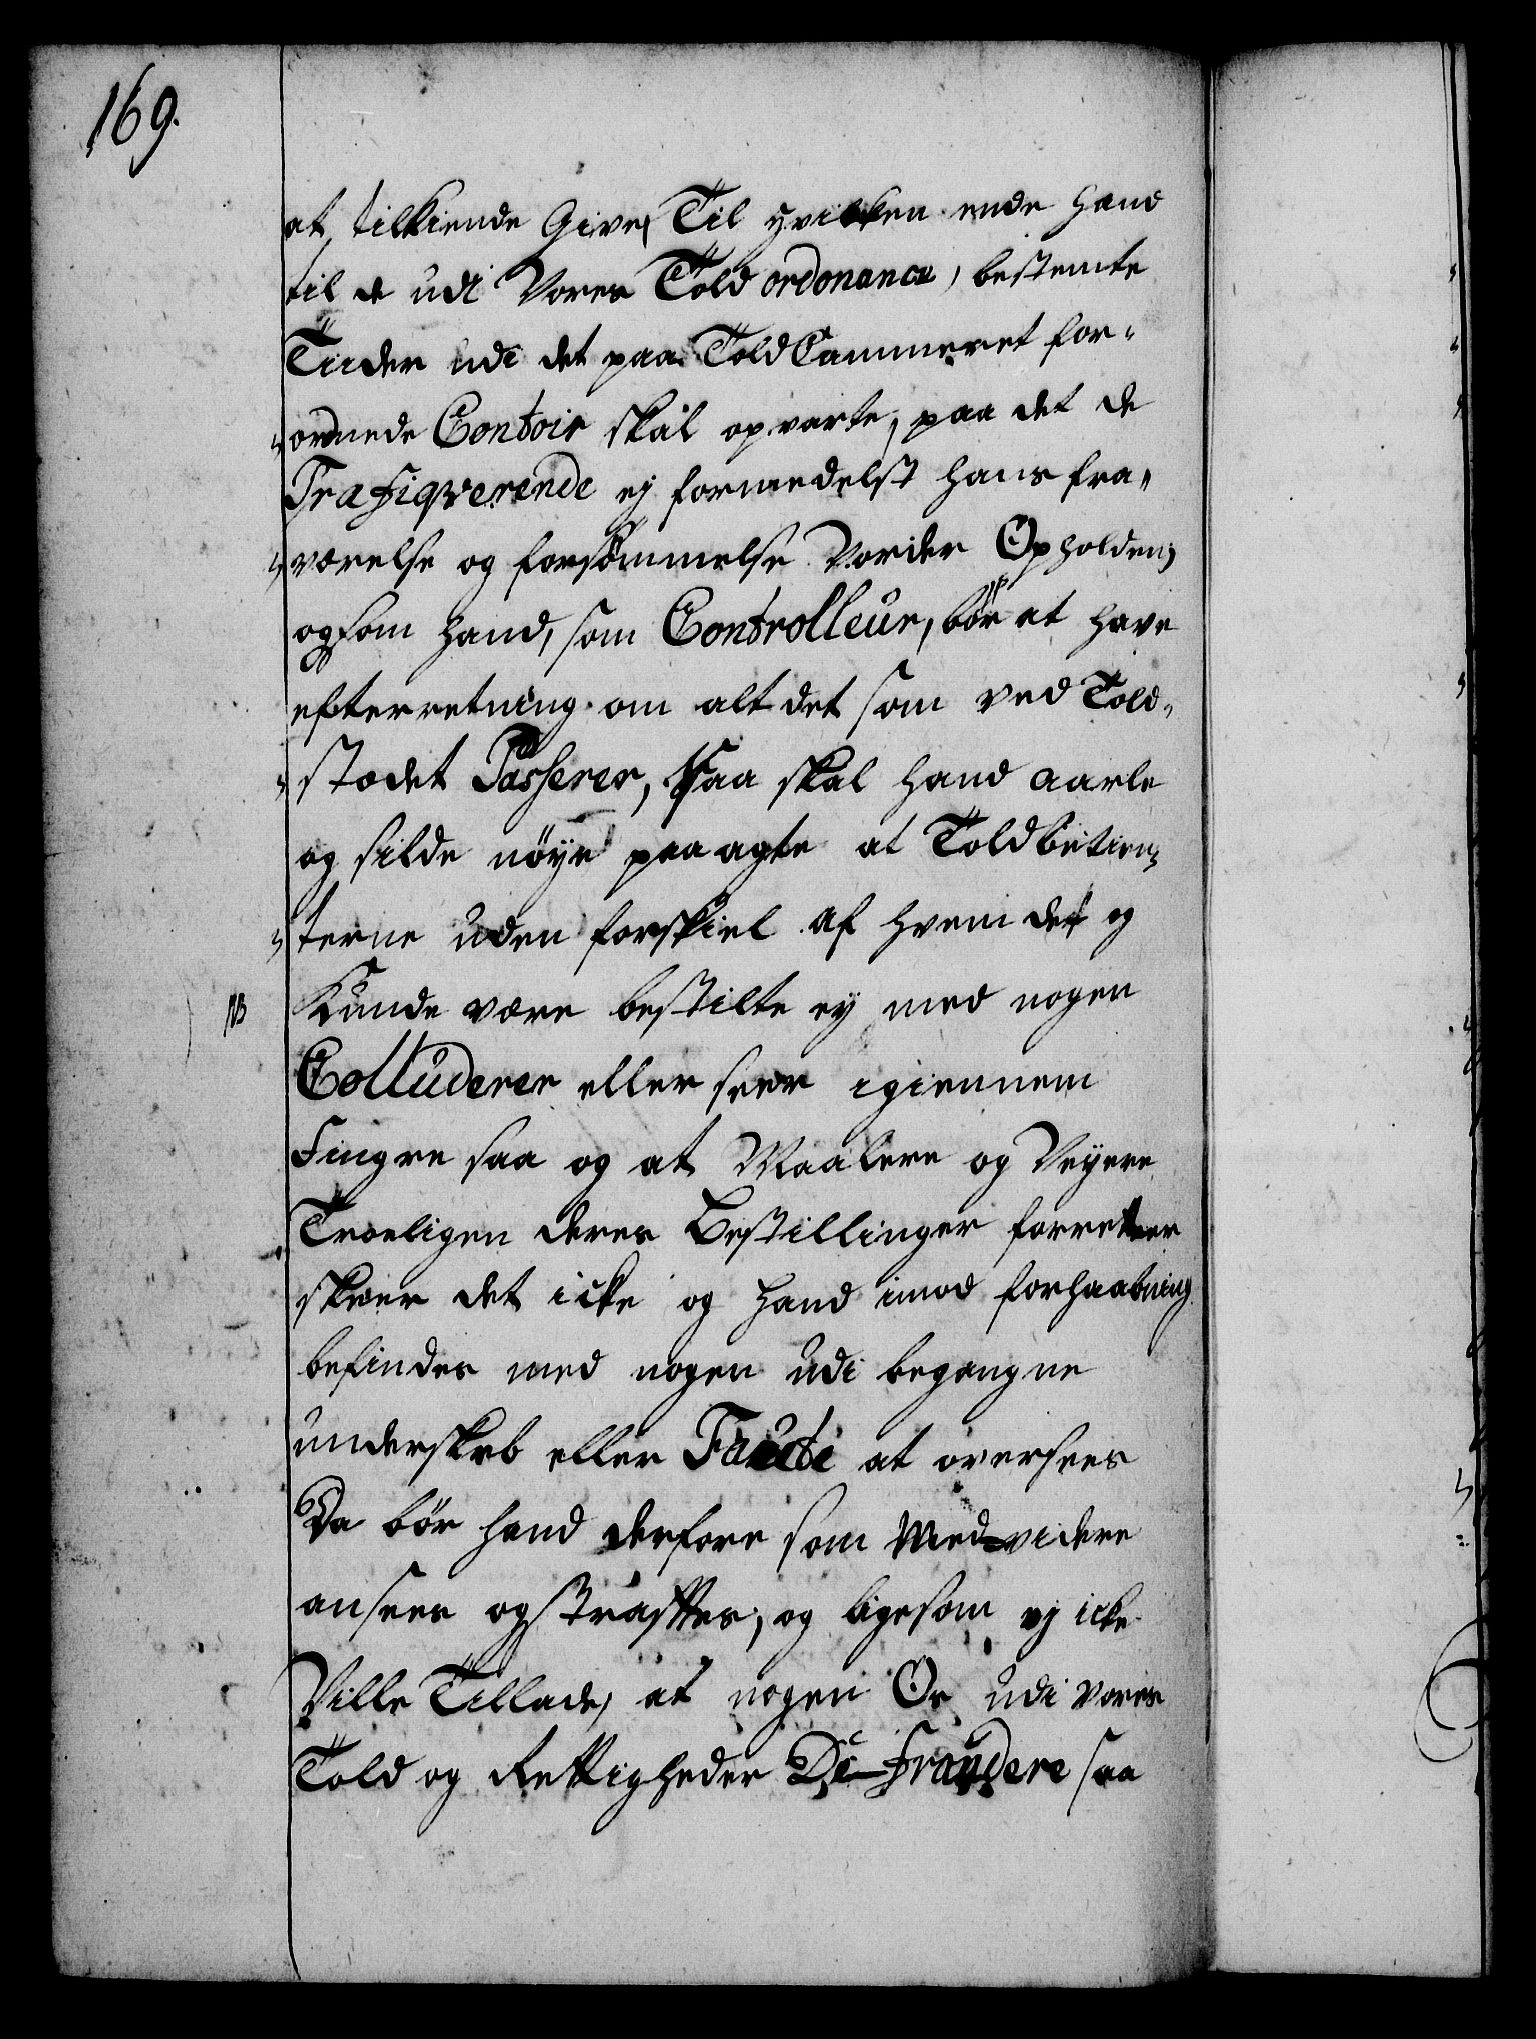 169.
at tilkiende Give, Til hvilken ende hand
til de udi Vores Told ordonance, bestemte
Tiider udi det paa ToldCammeret for-
ordnede Contoir skal opvarte, paa det de
Trafiqverende ej formedelst hans fra-
værelse og forsømmelse Vorder Opholden;
ogsom hand, som Controlleur, bør at have
efterretning om alt det som ved Told-
stædet Passerer, Saa skal hand aarle
og silde nøye paaagte at Toldbetien-
terne uden forskiel af hvem det og
NB Kunde være bestilte ey med nogen
Colluderer eller seer igiennem
Fingre saa og at Maalere og Veyere
Troeligen deres Bestillinger forretter
skeer det icke og hand imod forhaabning
befindes med nogen udi begangne
underskeb eller at oversees
Da bør hand derfore som Medvidere
ansees og straffes, og ligesom vj icke
Ville Tillade, at nogen Os udi vores
Told og Rettigheder De-fraudere saa